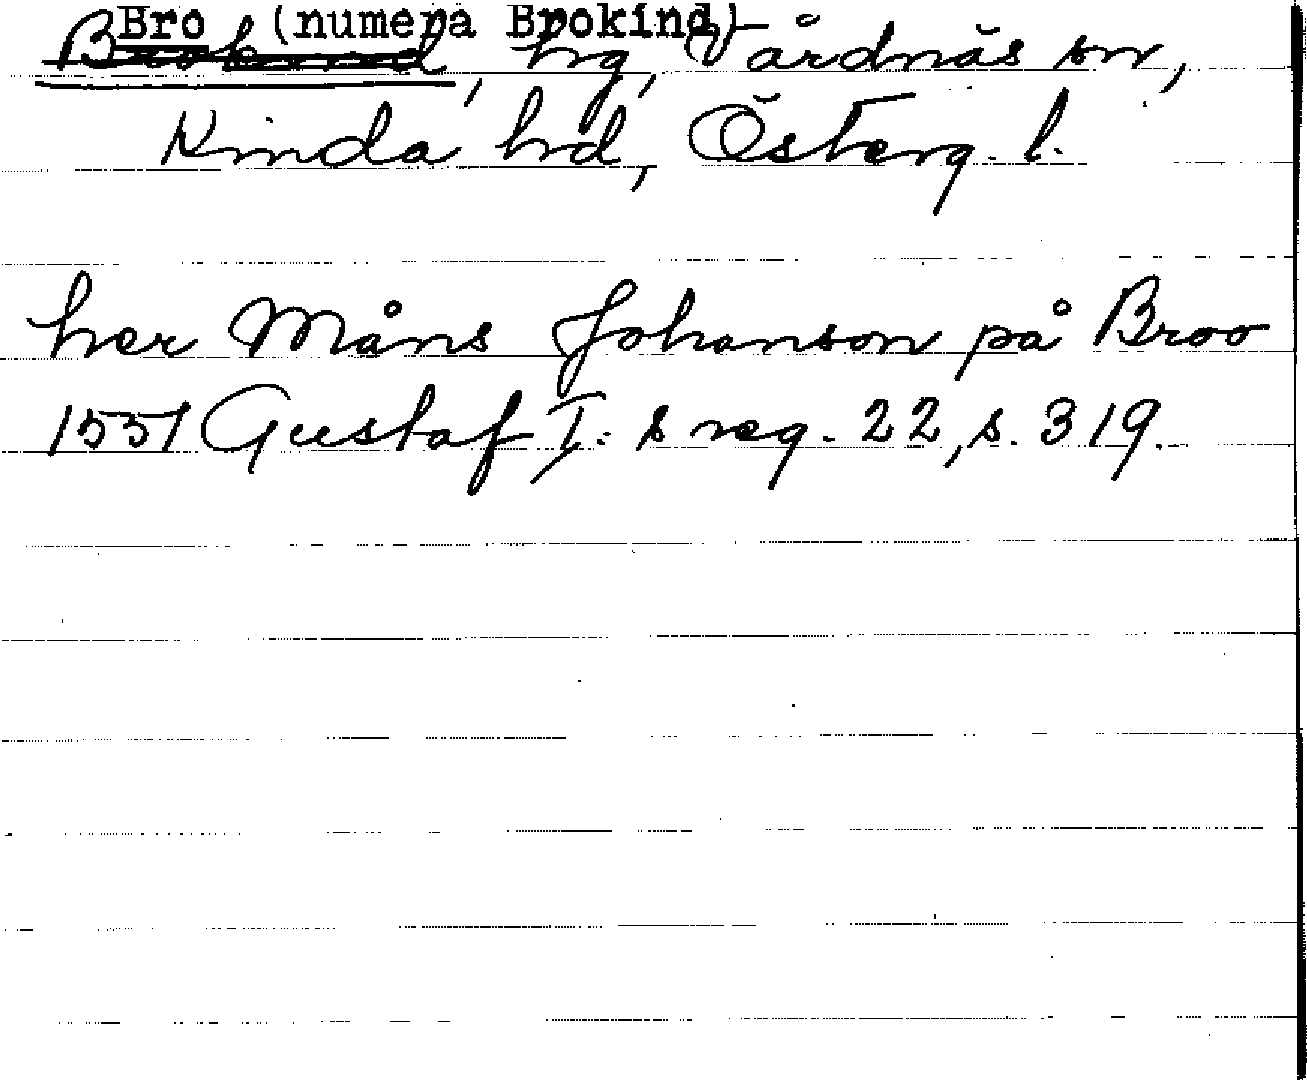 Bro (numera Brokind)
Brokind, hg, Vårdnäs sn,
Kinda hd, Österg. l.
her Måns Johanson på Broo
1551 Gustaf I: s reg. 22, s. 319.